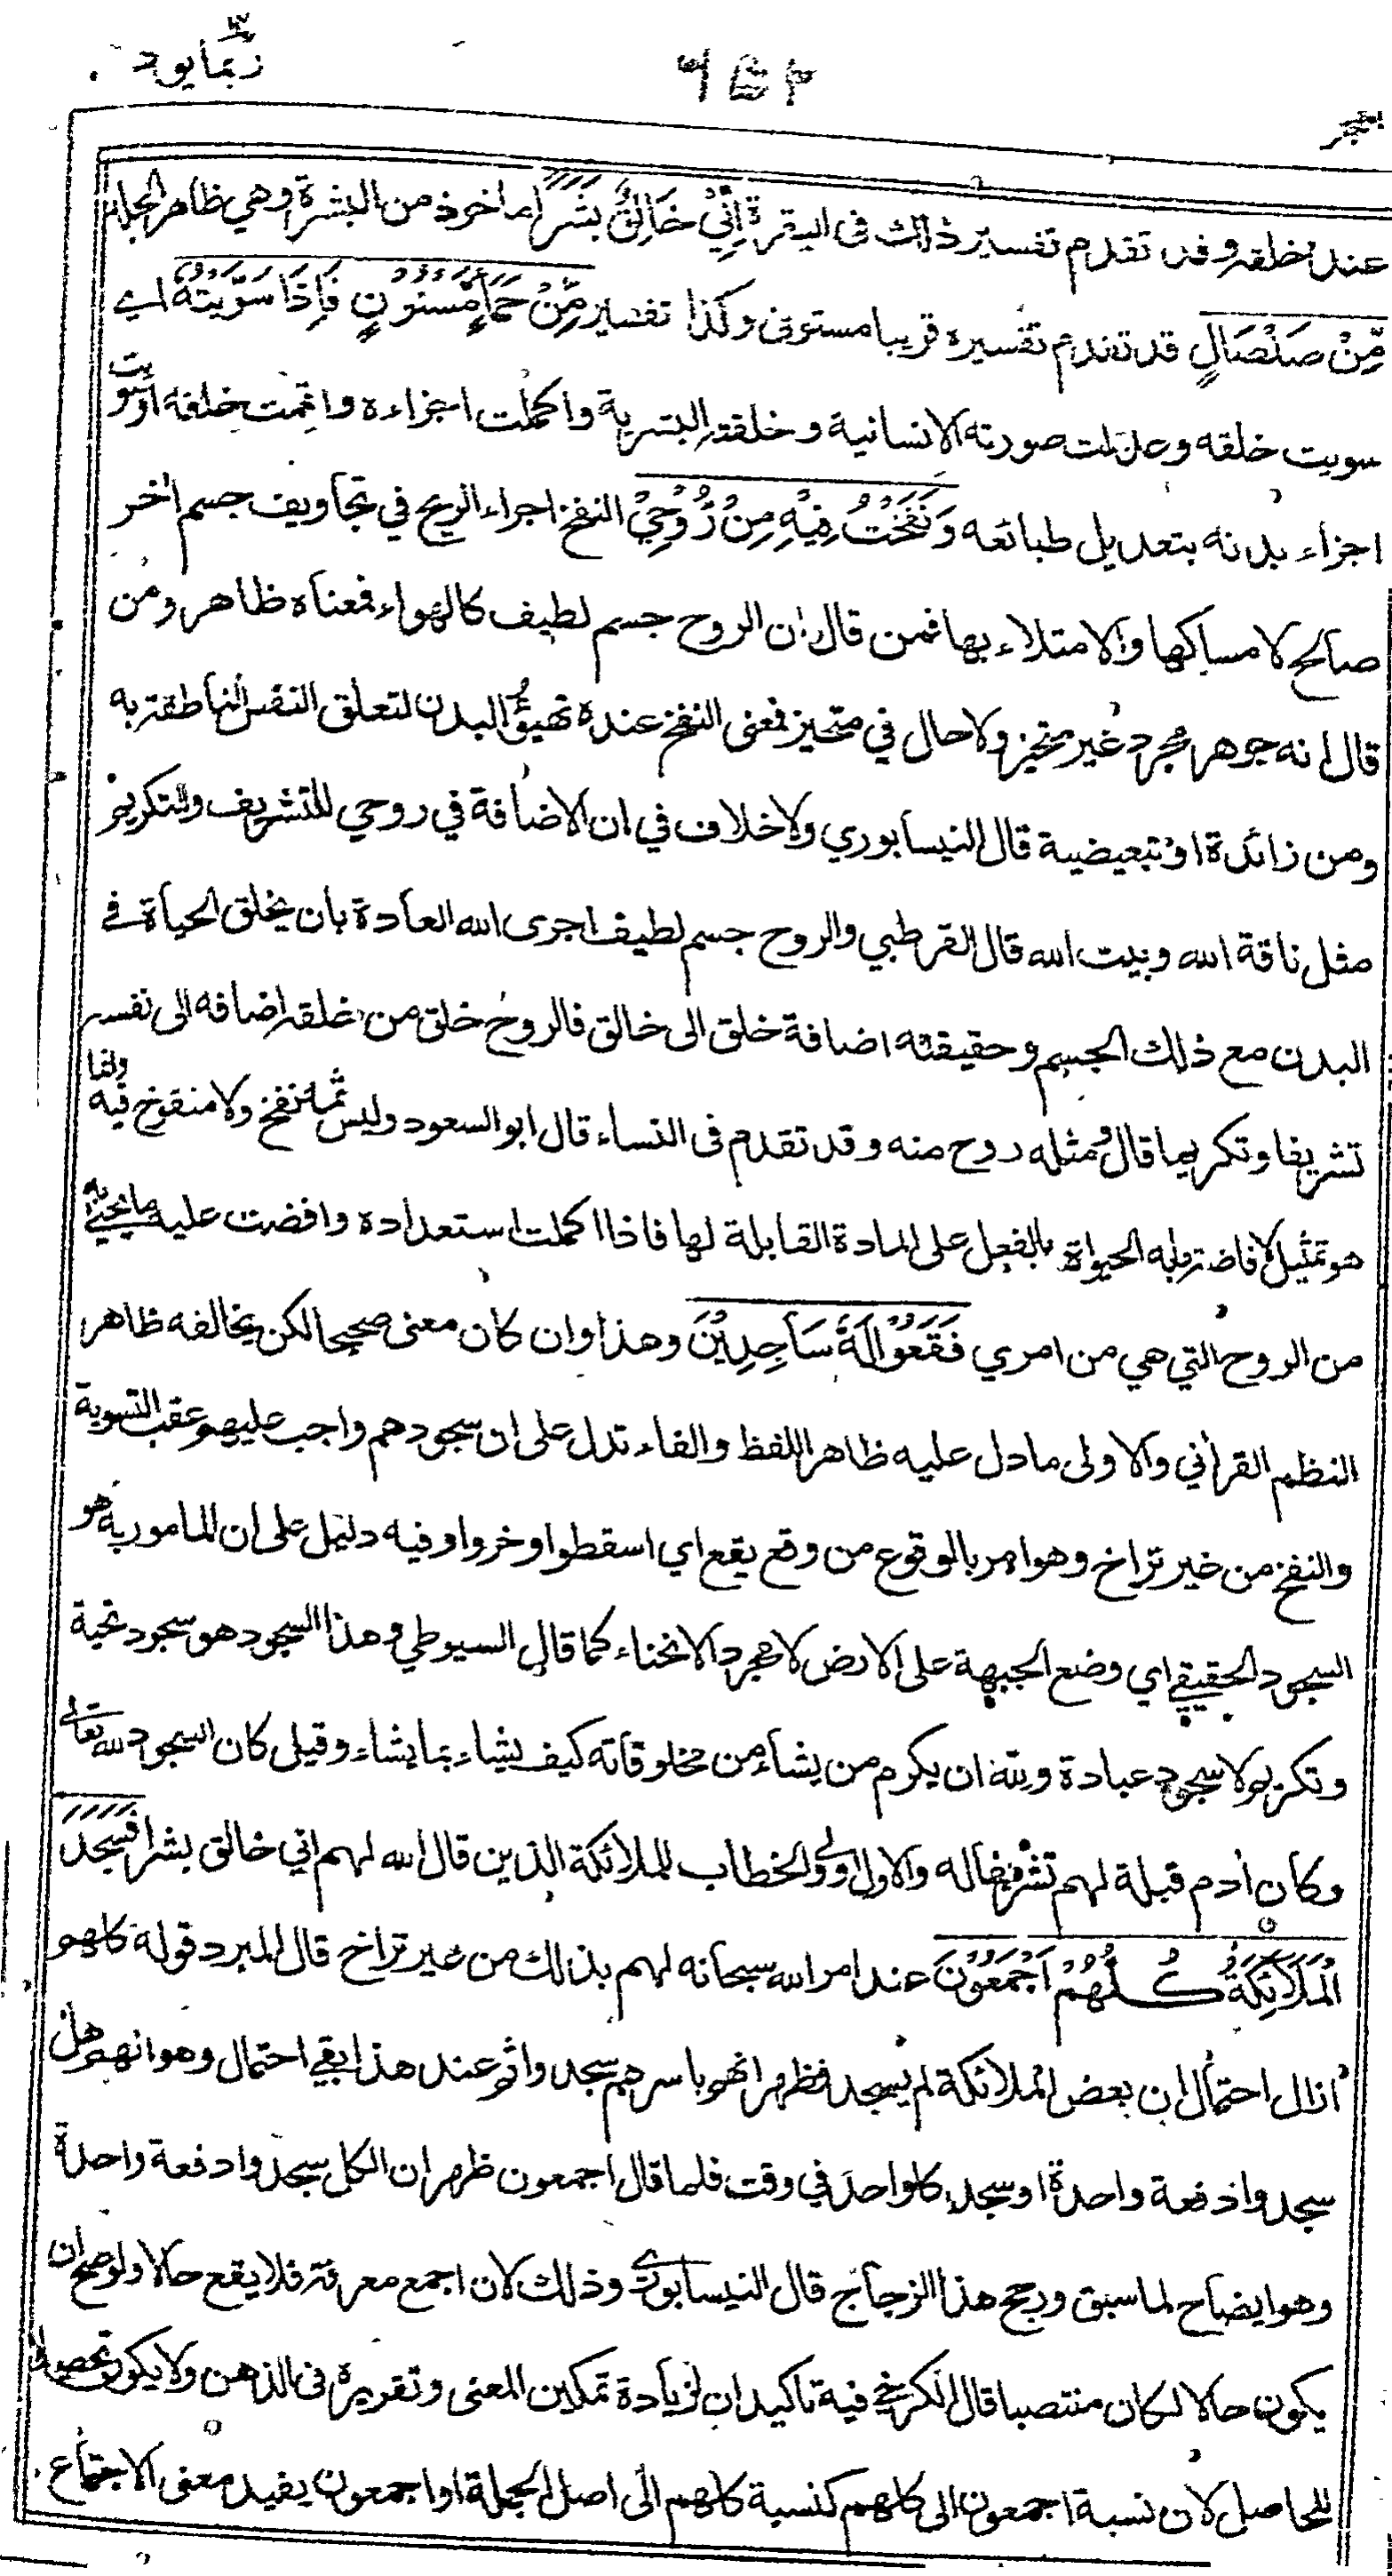 ربما يود
الحجر
عند خلقه وقد تقدم تفسير ذلك في البقرة اِنِّيْ خَالِقٌ بَشَرًا ماخوذ من البشرة وهي ظاهر الجلد
مِّنْ صَلْصَالٍ قد تقدم تفسيره قريبا مستوفى وكذا تفسير مِّنْ حَمَإٍ مَّسْنُوْنٍ فَاِذَا سَوَّيْتُهٗ اي
سويت خلقه وعدلت صورته الانسانية وخلقته البشرية واكملت اجزاءه واتممت خلقه او سويت
اجزاء بدنه بتعديل طبائعه وَنَفَخْتُ فِيْهِ مِنْ رُّوْحِيْ النفخ اجراء الريح في تجاويف جسم اخر
صالح لامساكها والامتلاء بها فمن قال ان الروح جسم لطيف كالهواء فمعناه ظاهر ومن
قال انه جوهر مجرد غير متحيز ولا حال في متحيز فمعنى النفخ عنده تهيؤ البدن لتعلق النفس الناطقة به
ومن زائدة او تبعيضية قال النيسابوري ولا خلاف في ان الاضافة في روحي للتشريف والتكريم
مثل ناقة الله وبيت الله قال القرطبي والروح جسم لطيف اجرى الله العادة بان يخلق الحياة في
البدن مع ذلك الجسم وحقيقته اضافة خلق الى خالق فالروح خلق من خلقه اضافه الى نفسه
تشريفا وتكريما قال ومثله روح منه وقد تقدم في النساء قال ابو السعود وليس ثمه نفخ ولا منفوخ فيه وانما
هو تمثيل لافاضة ما به الحيوة بالفعل على المادة القابلة لها فاذا اكملت استعداده وافضت عليه ما يحيى به
من الروح التي هي من امري فَقَعُوْا لَهٗ سَاجِدِيْنَ وهذا وان كان معنى صحيحا لكن يخالفه ظاهر
النظم القراني والاولى ما دل عليه ظاهر اللفظ والفاء تدل على ان سجودهم واجب عليهم عقب التسوية
والنفخ من غير تراخ وهو امر بالوقوع من وقع يقع اي اسقطوا وخروا وفيه دليل على ان المامور به هو
السجود الحقيقي اي وضع الجبهة على الارض لا مجرد الانحناء كما قال السيوطي وهذا السجود هو سجود تحية
وتكريم لا سجود عبادة ولله ان يكرم من يشاء من مخلوقاته كيف يشاء بما يشاء وقيل كان السجود لله تعالى
وكان ادم قبلة لهم تشريفا له والاول اولى والخطاب للملائكة الذين قال الله لهم اني خالق بشرا فَسَجَدَ
الْمَلَائِكَةُ كُلُّهُمْ اَجْمَعُوْنَ عند امر الله سبحانه لهم بذلك من غير تراخ قال المبرد قوله كلهم
ازال احتمال ان بعض الملائكة لم يسجد فظهر انهم باسرهم سجدوا ثم عند هذا بقي احتمال وهو انهم هل
سجدوا دفعة واحدة او سجد كل واحد في وقت فلما قال اجمعون ظهر ان الكل سجدوا دفعة واحدة
وهو ايضاح لما سبق ورجح هذا الزجاج قال النيسابوري وذلك لان اجمع معرفة فلا يقع حالا ولو صح ان
يكون حالا لكان منتصبا قال الكرخي فيه تاكيدان لزيادة تمكين المعنى وتقريره في الذهن ولا يكون تحصيلا
للحاصل لان نسبة اجمعون الى كلهم كنسبة كلهم الى اصل الجملة او اجمعون يفيد معنى الاجتماع